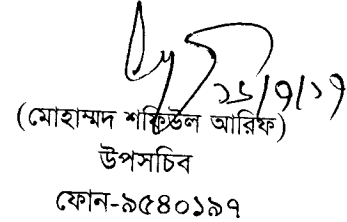 ১৬/৭/১৭
(মোহাম্মদ শফিউল আরিফ)
উপসচিব
ফোন-৯৫৪০১৯৭